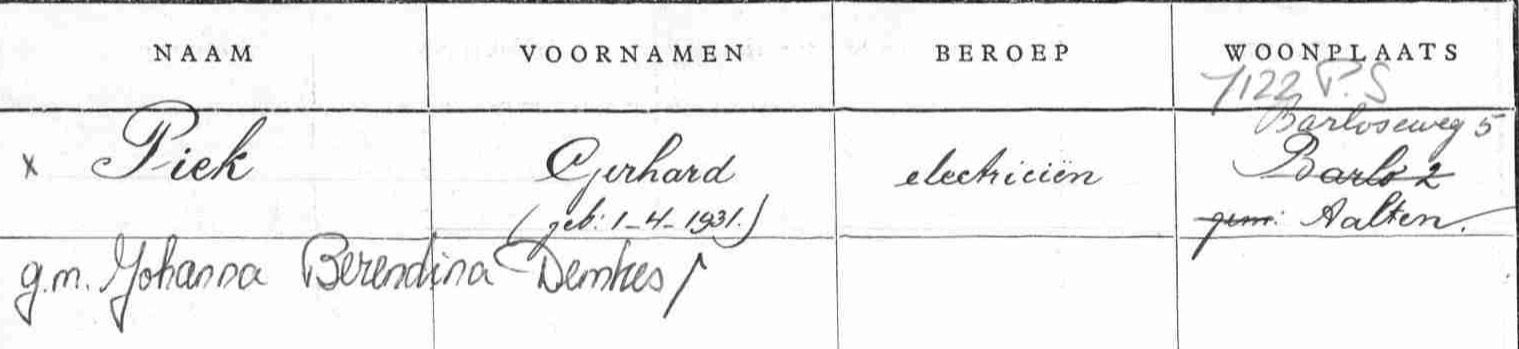 NAAM VOORNAMEN BEROEP WOONPLAATS
7122 P.S
Barloseweg 5
x Piek Gerhard electriciën Barlo 2
(geb: 1-4-1931.) gem: Aalten.
g.m. Johanna Berendina Demkes